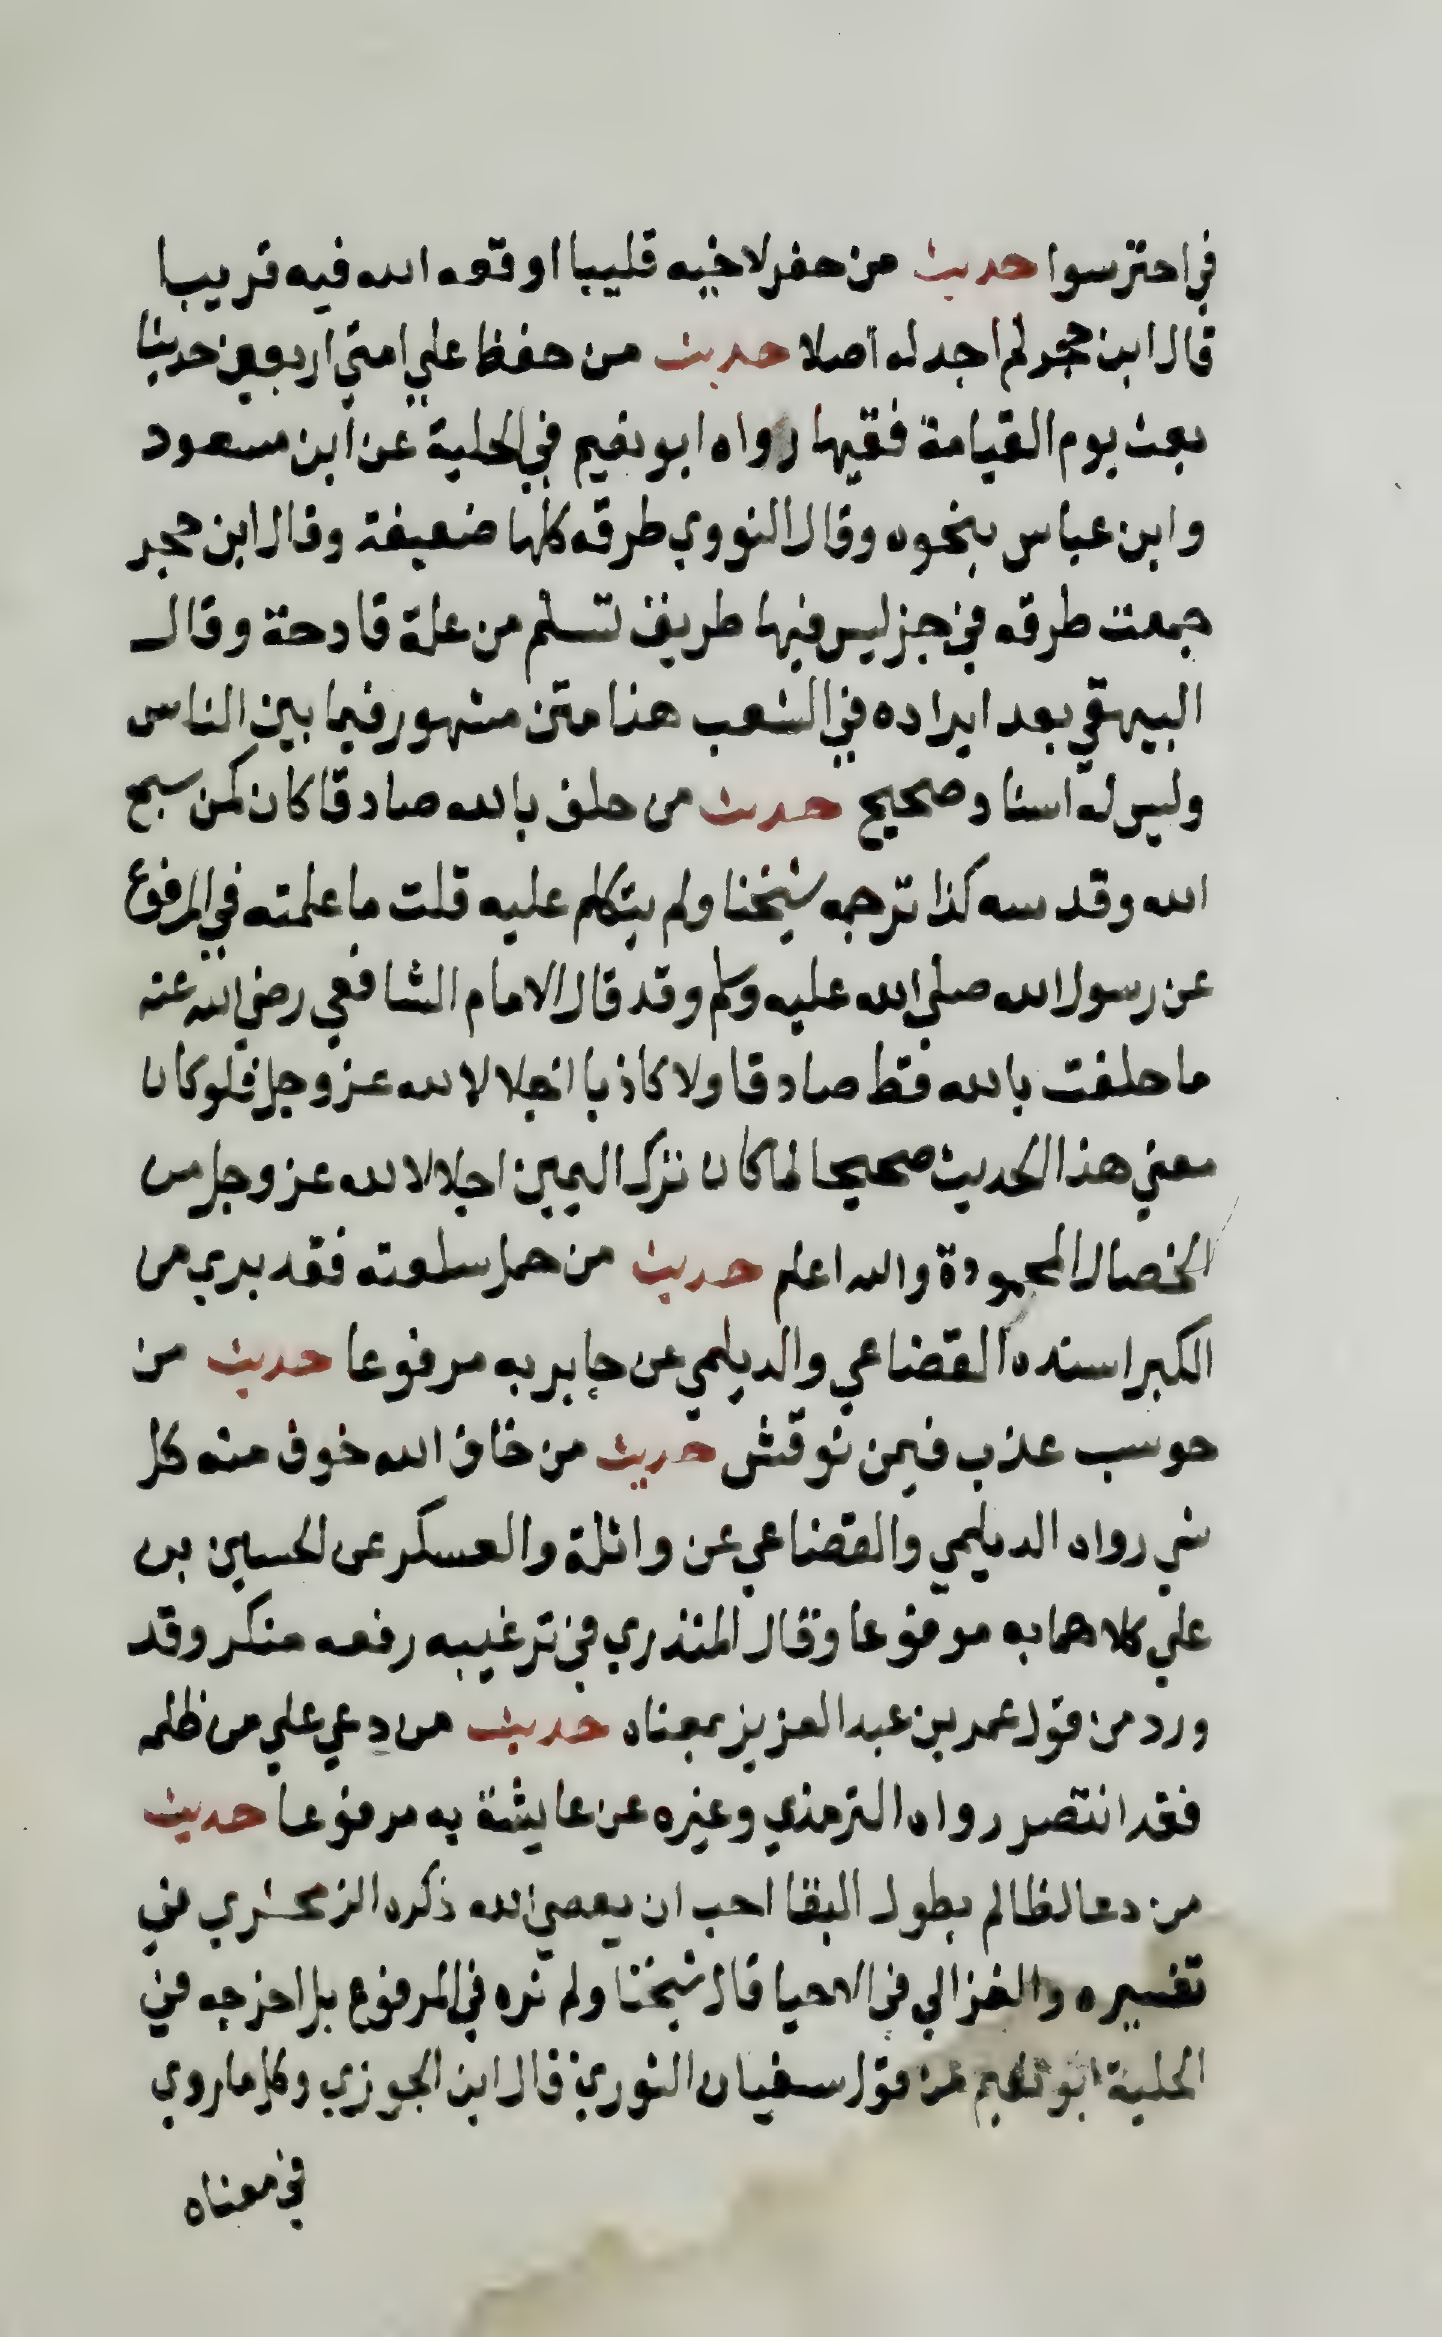 في احترسوا حديث من حفر لاخيه قليبا اوقعه الله فيه قريبا
قال ابن حجر لم اجد له اصلا حديث من حفظ علي امتي اربعين حديثا
بعث يوم القيامة فقيها رواه ابو نعيم في الحلية عن ابن مسعود
وابن عباس بنحوه وقال النووي طرقه كلها ضعيفة وقال ابن حجر
جمعت طرقه في جز ليس فيها طريق تسلم من علة قادحة وقال
البيهقي بعد ايراده في الشعب هذا متن مشهور فيما بين الناس
وليس له اسناد صحيح حديث من حلف بالله صادقا كان كمن سبح
الله وقدسه كذا ترجمه شيخنا ولم يتكلم عليه قلت ما علمته في المرفوع
عن رسول الله صلي الله عليه وسلم وقد قال الامام الشافعي رضي الله عنه
ما حلفت بالله قط صادقا ولا كاذبا اجلالا لله عز وجل فلو كان
معني هذا الحديث صحيحا لما كان ترك اليمين اجلالا لله عز وجل من
الخصال المحمودة والله اعلم حديث من حمل سلعته فقد بري من
الكبر اسنده القضاعي والديلمي عن جابر به مرفوعا حديث من
حوسب عذب فيمن نوقش حديث من خاف الله خوف منه كل
شي رواه الديلمي والقضاعي عن واثلة والعسكر عن الحسين بن
علي كلاهما به مرفوعا وقال المنذري في ترغيبه رفعه منكر وقد
ورد من قول عمر بن عبد العزيز بمعناه حديث من دعي علي من ظلمه
فقد انتصر رواه الترمذي وغيره عن عايشة به مرفوعا حديث
من دعا لظالم بطول البقا احب ان يعصي الله ذكره الزمخشري في
تفسيره والغزالي في الاحيا قال شيخنا ولم نره في المرفوع بل اخرجه في
الحلية ابو نعيم من قول سفيان الثوري قال ابن الجوزي وكل ما روي
في معناه